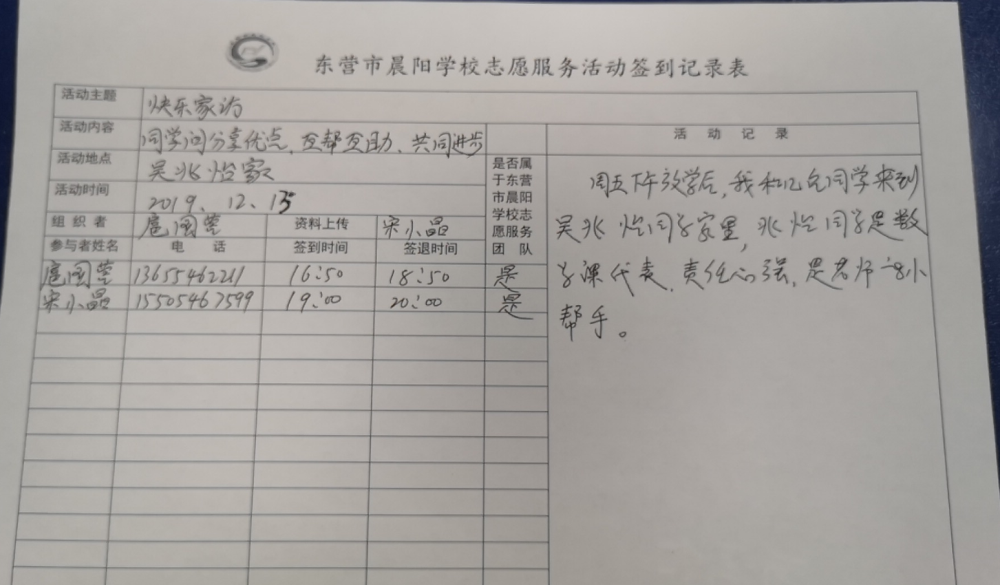 东营市晨阳学校志愿服务活动签到记录表
活动主题 快乐家访
活动内容 同学间分享优点、互帮互助、共同进步
活动地点 吴兆怡家
活动时间 2019.12.13
组织者 扈国莹 资料上传 宋小晶
参与者姓名 电话 签到时间 签退时间
是否属
于东营
市晨阳
学校志
愿服务
团队
扈国莹 13655462211 16:50 18:50 是
宋小晶 15505467599 19:00 20:00 是
活动记录
周五下午放学后,我和几名同学来到
吴兆怡同学家里,兆怡同学是数
学课代表,责任心强,是老师的小
帮手。